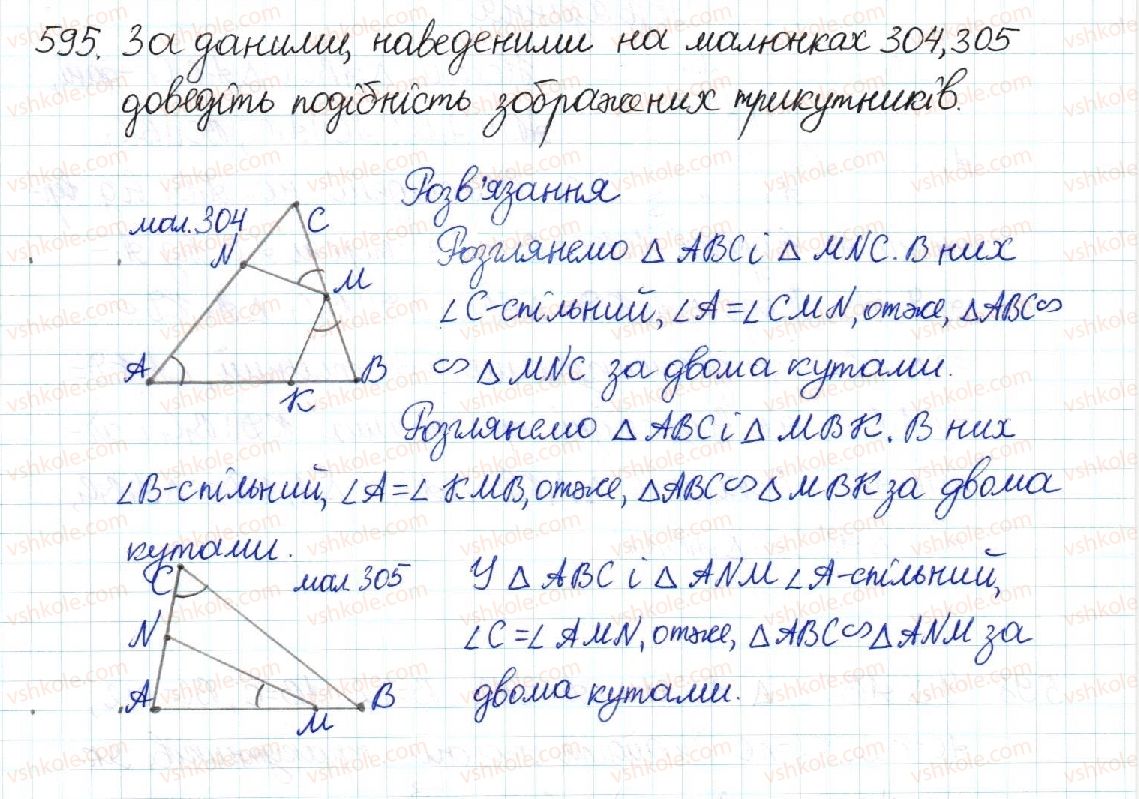 595. За даними, наведеними на малюнках 304, 305
доведіть подібність зображених трикутників.
Розв'язання
мал. 304
C
N
M
A
K
B
Розглянемо △ ABC і △ MNC. В них
∠C-спільний, ∠A=∠CMN, отже, △ABC∽
∽ △MNC за двома кутами.
Розглянемо △ABC і △ MBK. В них
∠B-спільний, ∠A=∠KMB, отже, △ABC∽△MBK за двома
кутами.
мал 305
C
N
A
M
B
У △ABC і △ANM ∠A-спільний,
∠C=∠AMN, отже, △ABC∽△ANM за
двома кутами.
vshkole.com